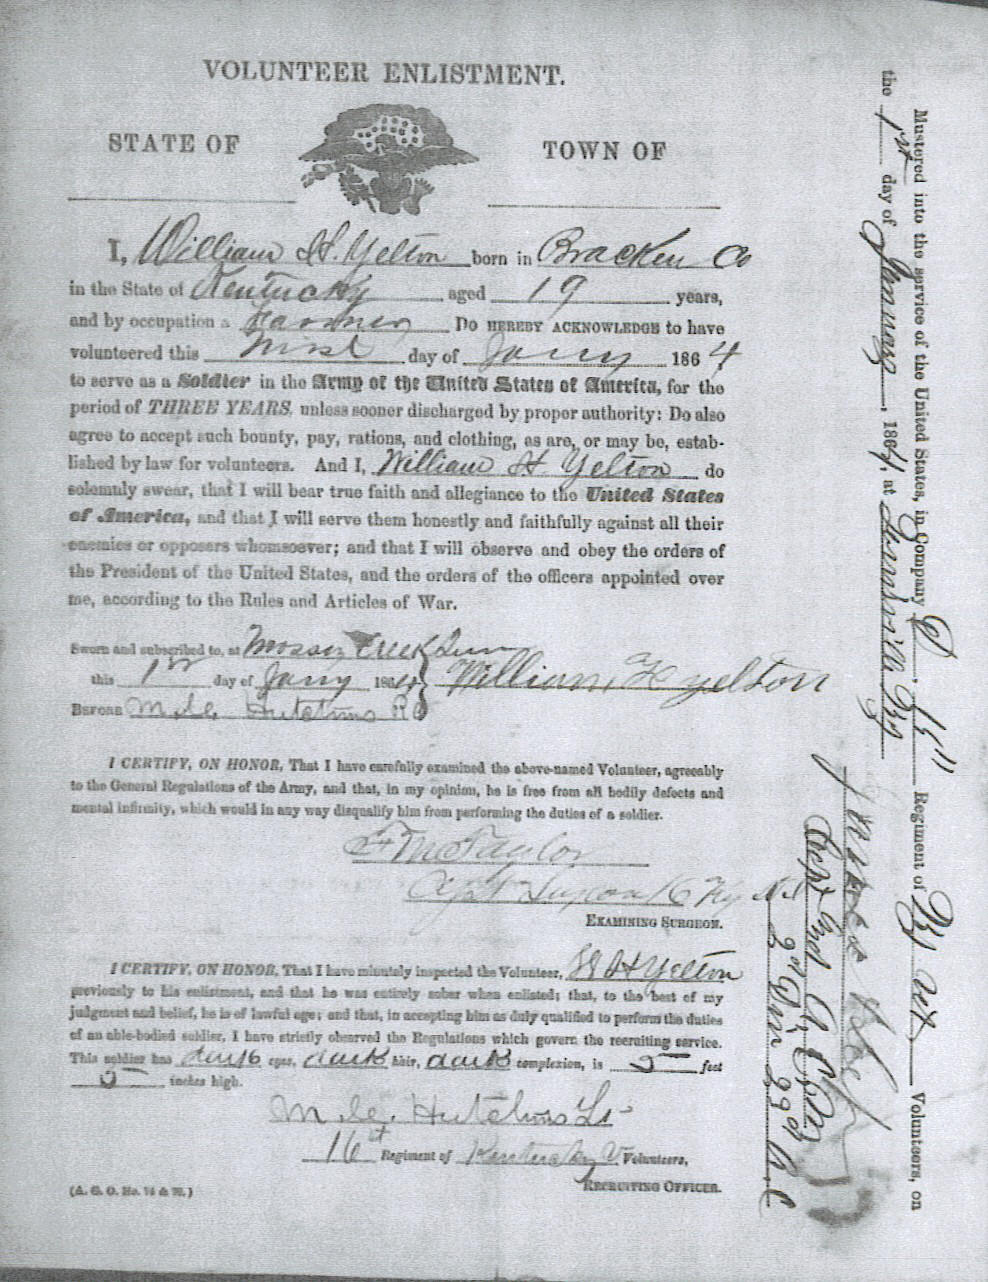 VOLUNTEER ENLISTMENT.
STATE OF TOWN OF
I, William H. Yelton born in Bracken Co
in the State of Kentucky aged 19 years,
and by occupation a Farmer Do HEREBY ACKNOWLEDGE to have
volunteered this First day of Jany 1864
to serve as a Soldier in the Army of the United States of America, for the
period of THREE YEARS, unless sooner discharged by proper authority: Do also
agree to accept such bounty, pay, rations, and clothing, as are, or may be, estab-
lished by law for volunteers. And I, William H. Yelton do
solemnly swear, that I will bear true faith and allegiance to the United States
of America, and that I will serve them honestly and faithfully against all their
enemies or opposers whomsoever; and that I will observe and obey the orders of
the President of the United States, and the orders of the officers appointed over
me, according to the Rules and Articles of War.
Sworn and subscribed to, at Mossy Creek Tenn
this 1st day of Jany 1864 William H Yelton
BEFORE Hutchins
I CERTIFY, ON HONOR, That I have carefully examined the above-named Volunteer, agreeably
to the General Regulations of the Army, and that, in my opinion, he is free from all bodily defects and
mental infirmity, which would in any way disqualify him from performing the duties of a soldier.
Taylor
16 Ky
EXAMINING SURGEON.
I CERTIFY, ON HONOR, That I have minutely inspected the Volunteer, W H Yelton
previously to his enlistment, and that he was entirely sober when enlisted; that, to the best of my
judgment and belief, he is of lawful age; and that, in accepting him as duly qualified to perform the duties
of an able-bodied soldier, I have strictly observed the Regulations which govern the recruiting service.
This soldier has dark eyes, dark hair, dark complexion, is 5 feet
5 inches high.
Hutchins Lt
16th Regiment of Kentucky V. Volunteers,
RECRUITING OFFICER.
(A. G. O. No. 74 & 76.)
Mustered into the service of the United States, in Company D, 16" Regiment of Ky Volunteers, on
the 1st day of January, 1864, at Ky
2d Div 23d A.C